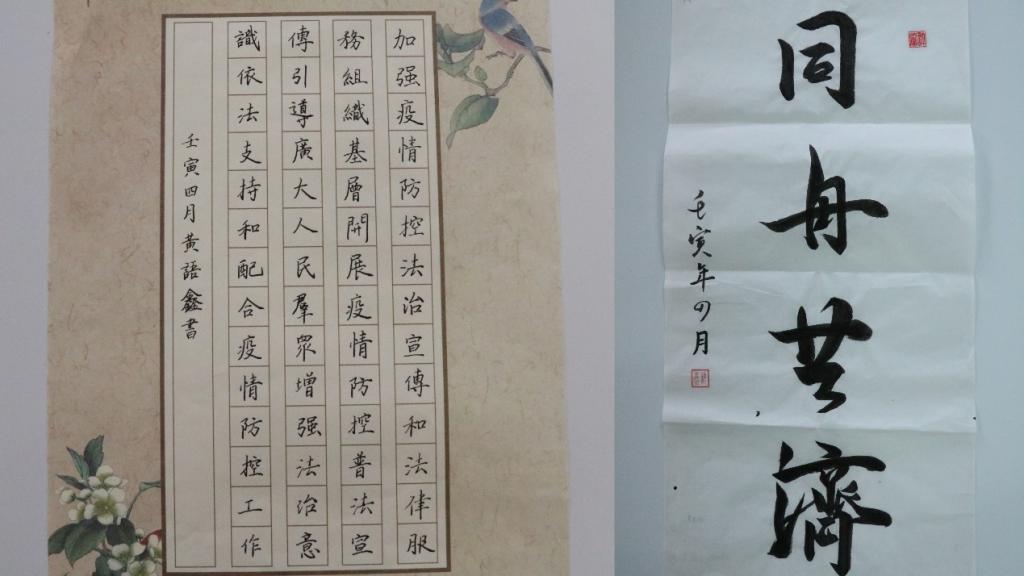 加强疫情防控法治宣傳和法律服
務組織基層開展疫情防控普法宣
傳引導廣大人民羣眾增强法治意
識依法支持和配合疫情防控工作
壬寅四月黃語鑫書
同舟共濟
壬寅年四月